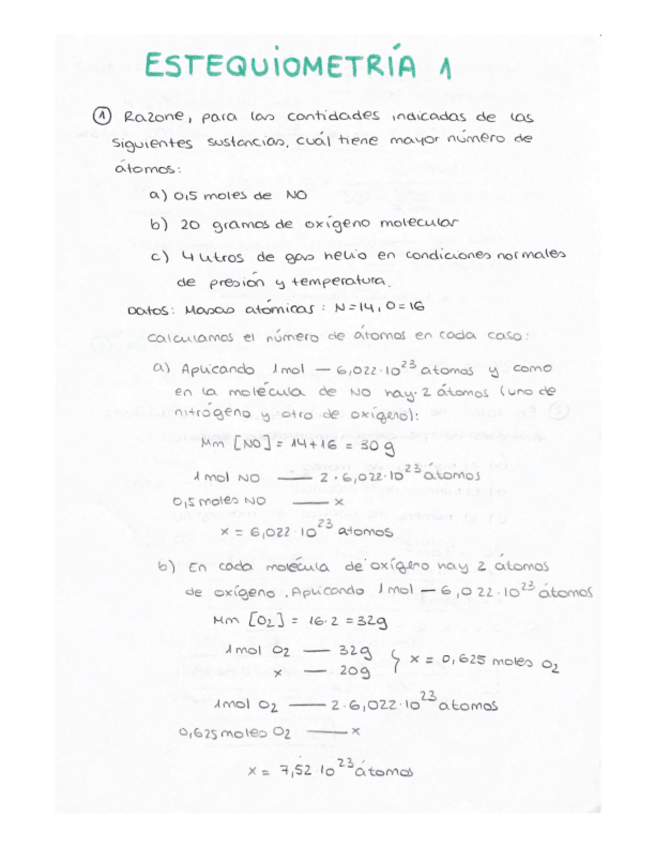 ESTEQUIOMETRÍA 1
① Razone, para las cantidades indicadas de las
siguientes sustancias, cuál tiene mayor número de
átomos:
a) 0,5 moles de NO
b) 20 gramos de oxígeno molecular
c) 4 litros de gas helio en condiciones normales
de presión y temperatura.
Datos: Masas atómicas: N=14, O=16
Calculamos el número de átomos en cada caso:
a) Aplicando 1mol — 6,022·10²³ atomos y como
en la molécula de NO hay 2 átomos (uno de
nitrógeno y otro de oxígeno):
Mm [NO] = 14+16 = 30 g
1 mol NO —— 2·6,022·10²³ átomos
0,5 moles NO —— x
x = 6,022·10²³ atomos
b) En cada molécula de oxígeno hay 2 átomos
de oxígeno. Aplicando 1 mol — 6,022·10²³ átomos
Mm [O₂] = 16·2 = 32g
1 mol O₂ — 32g
x — 20g } x = 0,625 moles O₂
1mol O₂ —— 2·6,022·10²³ atomos
0,625 moles O₂ —— x
x = 7,52 10²³ átomos